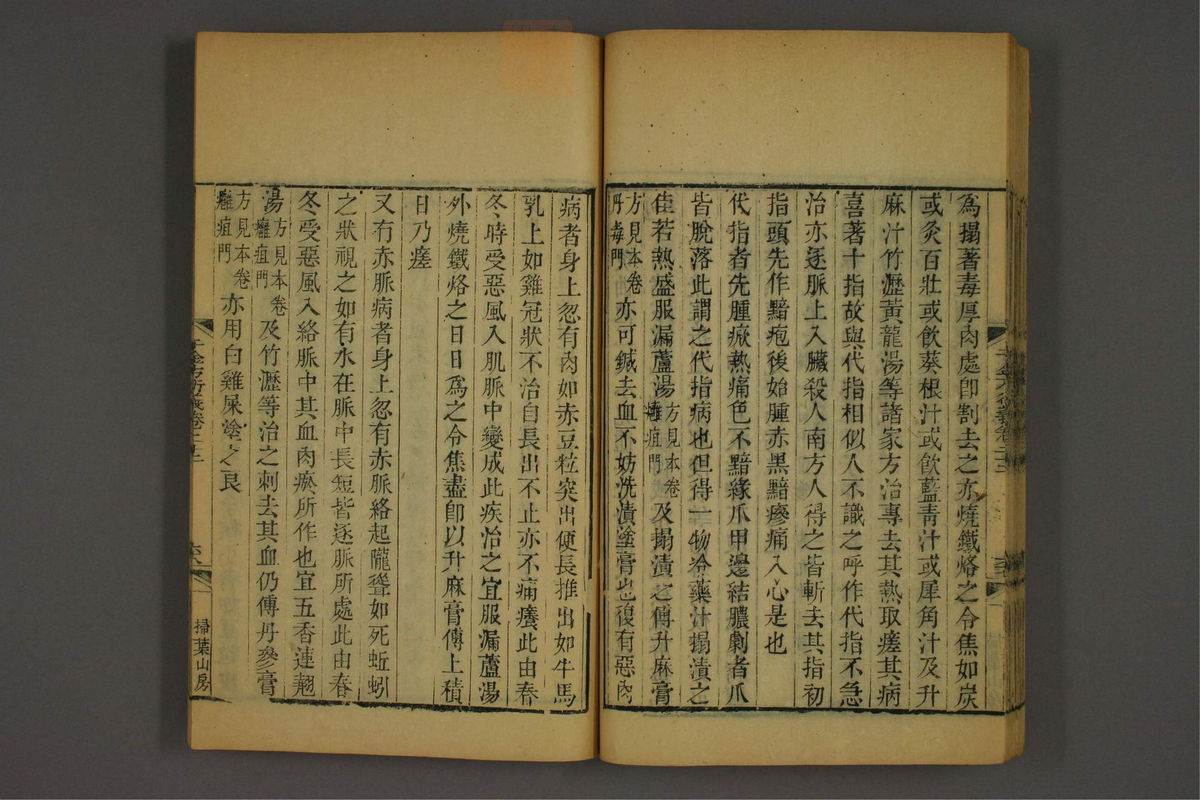 為搨著毒厚肉處卽割去之亦燒鐵烙之令焦如炭
或灸百壯或飲葵根汁或飲藍青汁或犀角汁及升
麻汁竹瀝黃龍湯等諸家方治專去其熱取瘥其病
喜著十指故與代指相似人不識之呼作代指不急
治亦逐脈上入臟殺人南方人得之皆斬去其指初
指頭先作黯疱後始腫赤黑黯瘮痛入心是也
代指者先腫焮熱痛色不黯緣爪甲邊結膿劇者爪
皆脫落此謂之代指病也但得一物冷藥汁搨漬之
佳若熱盛服漏蘆湯方見本卷癰疽門及搨漬之傅升麻膏
方見本卷丹毒門亦可鍼去血不妨洗漬塗膏也復有惡肉
病者身上忽有肉如赤豆粒突出便長推出如牛馬
乳上如雞冠狀不治自長出不止亦不痛癢此由春
冬時受惡風入肌脈中變成此疾治之宜服漏蘆湯
外燒鐵烙之日日為之令焦盡卽以升麻膏傅上積
日乃瘥
又有赤脈病者身上忽有赤脈絡起隴聳如死蚯蚓
之狀視之如有水在脈中長短皆逐脈所處此由春
冬受惡風入絡脈中其血肉瘀所作也宜五香連翹
湯方見本卷癰疽門及竹瀝等治之刺去其血仍傅丹參膏
方見本卷癰疽門亦用白雞屎塗之良
千金方衍義卷二十二
掃葉山房